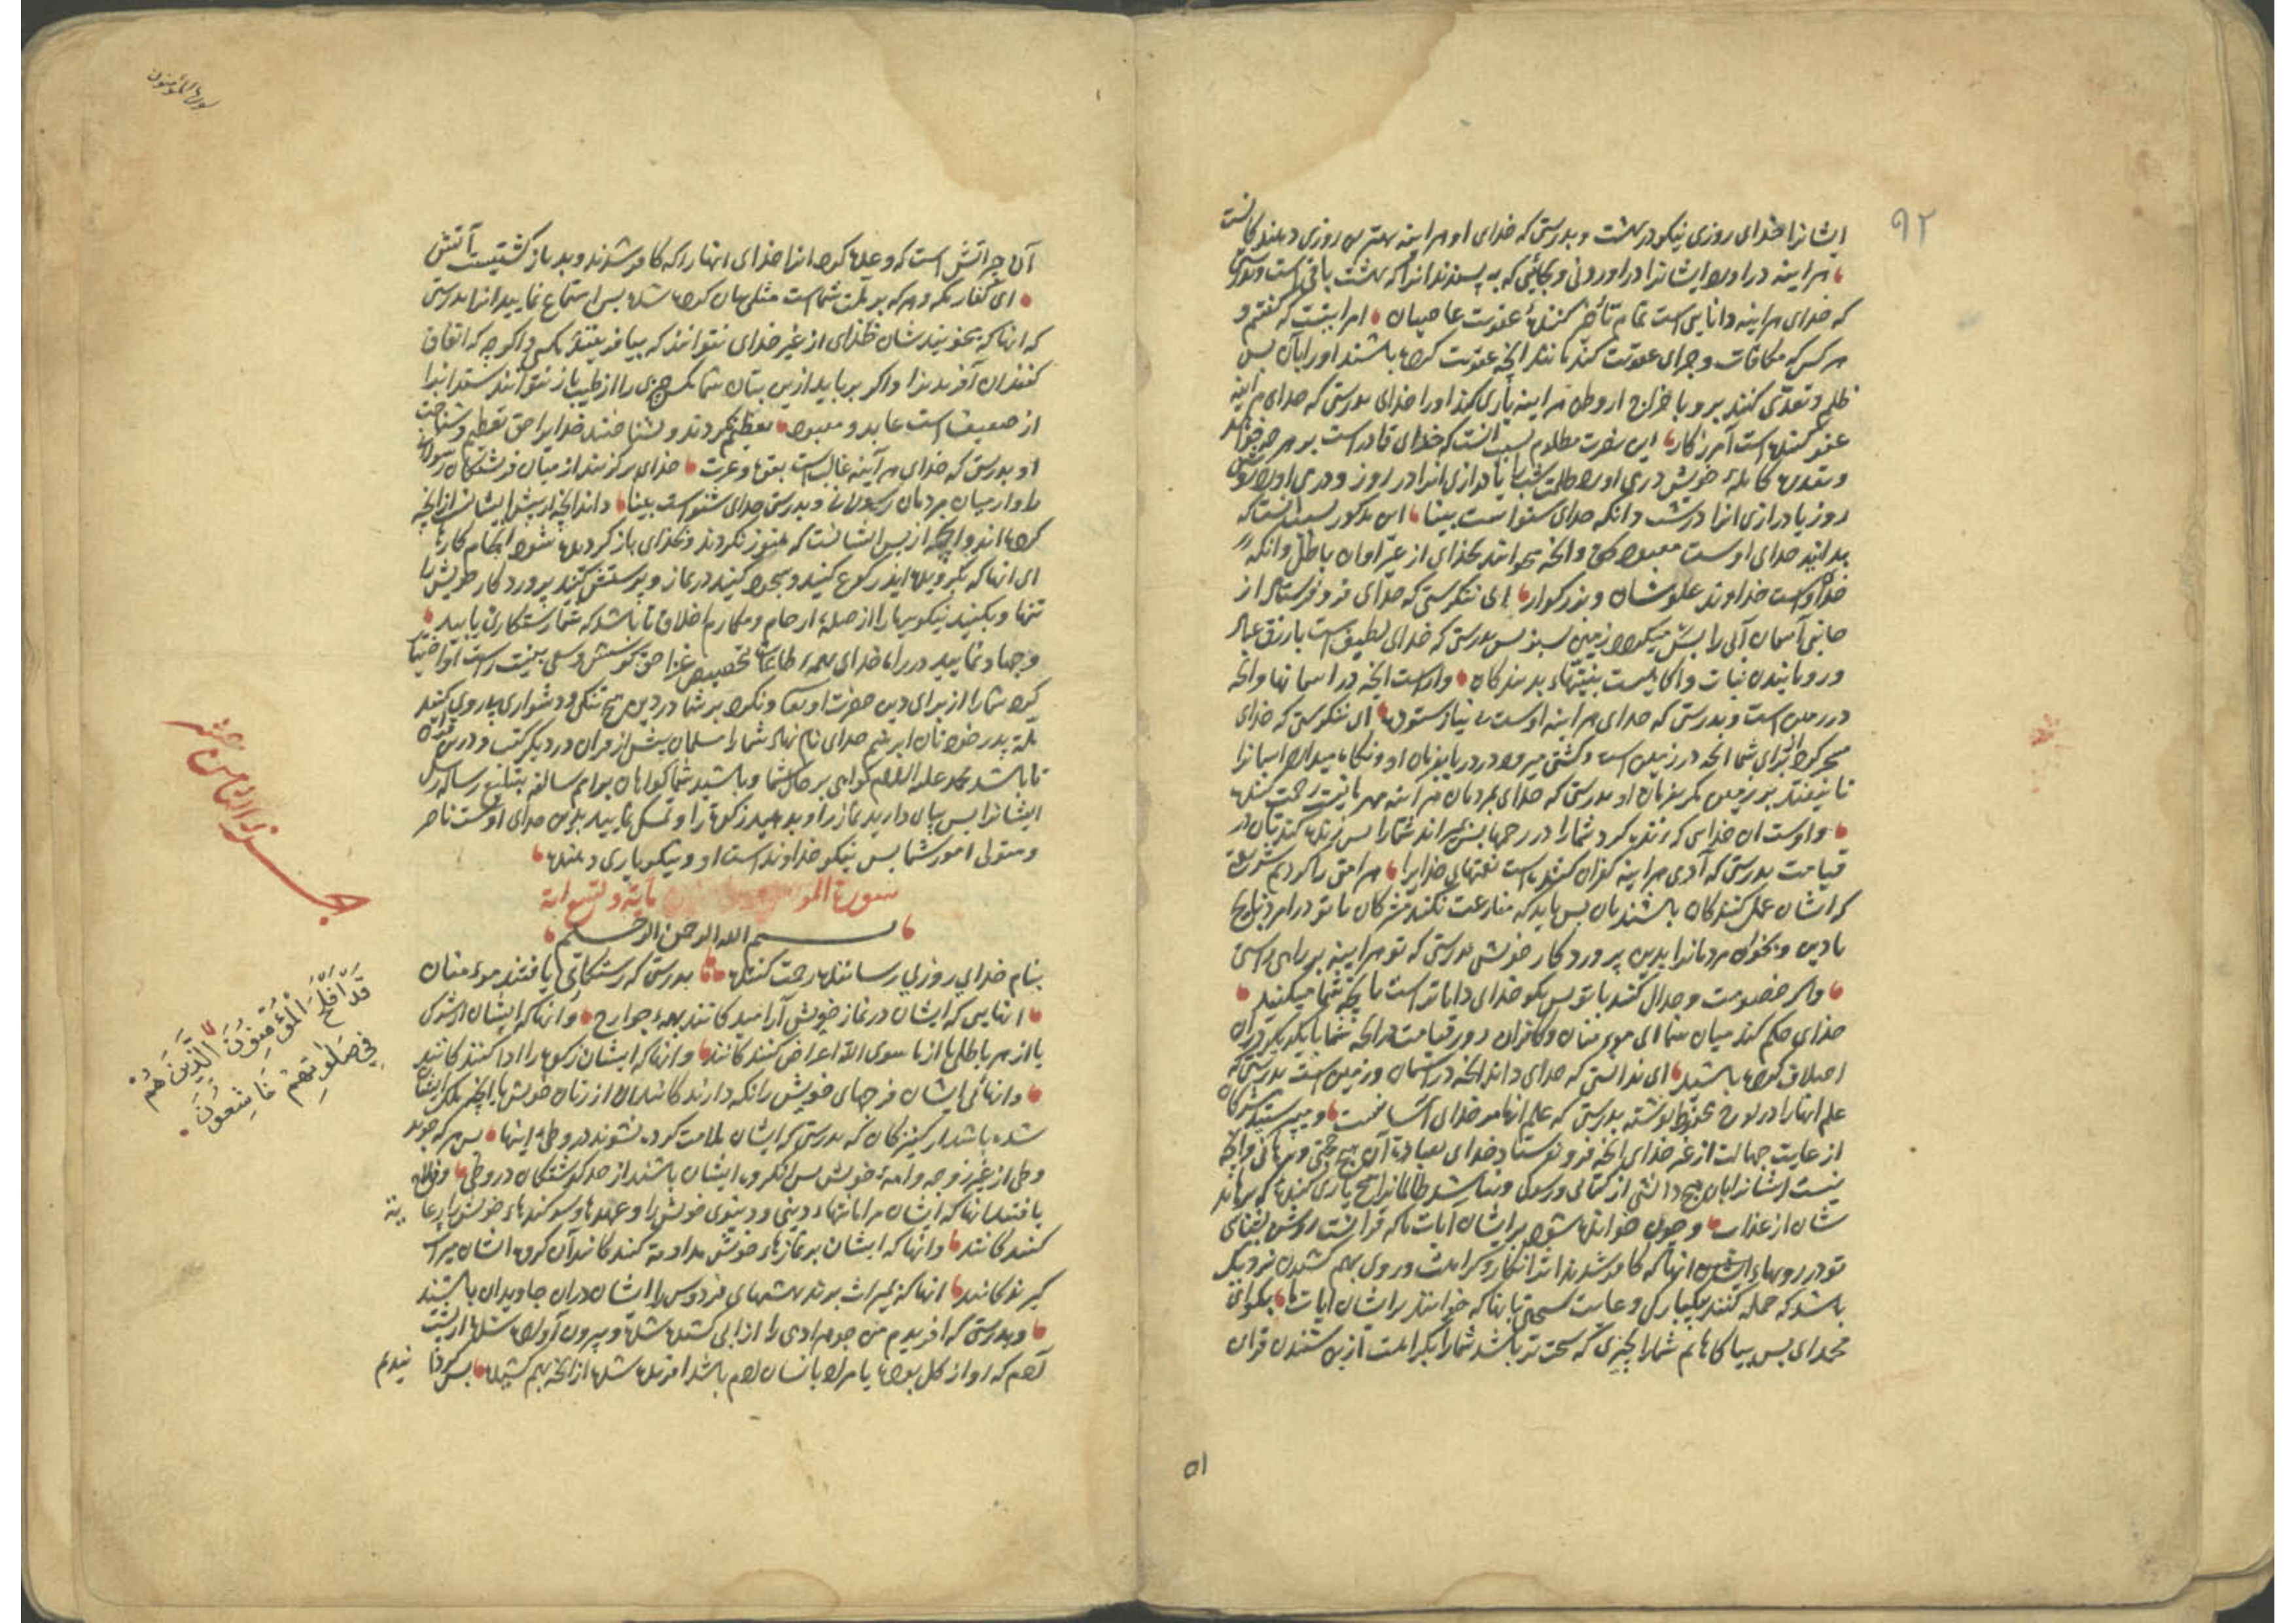 ۹۲
ایشانرا خدای روزی نیکو در بهشت و بدرستی که خدای او هراینه بهترین روزی دهندکانست
هراینه دراورد ایشانرا دراوردنی و بجائی که به پسندند انرا که بهشت باقی است و بدرستی
که خدای هراینه داناییست تمام تأخیر کننده عقوبت عاصیان امر اینست که گفتیم و
هر کس که مکافات و جزای عقوبت کند مانند انچه عقوبت کرده باشند اورا بآن پس
ظلم و تعدی کنند برو باخراج از وطن هراینه یاری کند اورا خدای بدرستی که خدای هراینه
عفو کننده است آمرزکار این نصرت مظلوم بسبب انست که خدای قادر است بر هر چه خواهد
و بقدرت کامله خویش درمی اورد ظلمت شب را یا درازی انرا در روز و درمی اورد روشنی
روز یا درازی انرا در شب و انکه خدای شنواست بینا این مذکور بسبب انست که
بدانید خدای اوست معبود بحق و انچه میخوانند بخدای از غیر او ان باطل و انکه
خدا اوست خداوند علو شان و بزرکوار ای ننکرستی که خدای فرو فرستاد از
جانب آسمان آبی را پس میکردد زمین سبز پس بدرستی که خدای لطیف است بارزق عباد
و رویانیدن نبات و اکاهست بنیتهاء بندکان و اوراست انچه در اسمانها و انچه
در زمین است و بدرستی که خدای هراینه اوست بی نیاز ستوده ای ننکرستی که خدای
مسخر کرد برای شما انچه در زمین است و کشتی میرود در دریا بفرمان او و نکاه میدارد اسمانرا
تا نیفتد بر زمین مکر بفرمان او بدرستی که خدای بمردمان هراینه مهربانیست رحمت کننده
و اوست ان خدایی که زنده کرد شما را در رحمها پس بمیراند شما را پس زنده کند تان در
قیامت بدرستی که آدمی هراینه کفران کننده است نعمتهای خدایرا هر امتی را کردیم شریعتی
که ایشان عمل کنندکان باشند بآن پس باید که منازعت نکنند مشرکان با تو در امر ذبایح
یا دین و بخوان مردمانرا بدین پروردکار خویش بدرستی که تو هراینه بر راه راستی
و اکر خصومت و جدال کنند با تو پس بکو خدای داناتر است بانچه شما میکنید
خدای حکم کند میان شما ای مومنان و کافران روز قیامت در انچه شما با یکدیکر در ان
اختلاف کرده باشید ای ندانستی که خدای داند انچه در اسمان و زمین است بدرستی که
علم اینها را در لوح محفوظ نوشته بدرستی که علم انها مر خدای آسانست و میپرستند مشرکان
از غایت جهالت از غیر خدای انچه فرو نفرستاد خدای بعبادت آن هیچ حجتی و برهانی و انچه
نیست ایشانرا بان هیچ دانشی از کتابی و رسولی و نباشد ظالمانرا هیچ یاری کننده که برهاند
شان از عذاب و چون خوانده شود بر ایشان آیات ما که قرانست روشن بشناسی
تو در رویهاء ایشان انها که کافر شدند اثر انکار و کراهت و روی بهم کشیدن نزدیک
باشد که حمله کنند بیکبارکی و غایت سختی بانها که خوانند بر ایشان آیات ما بکو ای
محمد ای پس بیاکاهانم شما را بچیزی که سخت تر باشد شما را بکراهت ازین شنیدن قران
۵۱
سورة المؤمنون
آن چه آتش است که وعده کرده انرا خدای انها را که کافر شدند و بد بازکشتیست آتش
ای کفار مکه و هر که بر ملت شماست مثلی بیان کرده شده پس استماع نمایید انرا بدرستی
که انها که میخونید شان خدای از غیر خدای نتوانند که بیافرینند مکسی و اکر چه که اتفاق
کنند ان آفریدن را و اکر برباید ازین بتان شما مکس چیزی را از طیب باز نتوانند ستد انرا
از ضعیف است عابد و معبود تعظیم نکردند و نشناختند خدایرا حق تعظیم و شناخت
او بدرستی که خدای هرآینه غالب است بقوت و عزت خدای برکزیند از میان فرشتکان رسولان
را و از میان مردمان رسولان و بدرستی خدای شنو است بینا داند انچه از پیش ایشانست از انچه
کرده اند و انچه از پس ایشانست که هنوز نکردند و بخدای باز کردیده شود انجام کارها
ای انها که بکرویده ایذ رکوع کنید و سجود کنید در نماز و پرستش کنید پروردکار خویش را
تنها و بکنید نیکویها را از صله ارحام و مکارم اخلاق تا باشد که شما رستکاری یابید
و جهاد نمایید در راه خدای بهمه طاعات تخصیص غزا حق کوشش و سعی بنیت راست او اختیار
کرد شما را از برای دین حضرت او تعالی و نکرد بر شما در دین هیچ تنکی و دشواری پیروی کنید
ملة پدر خودتان ابرهیم خدای نام نهاد شما را مسلمان پیش از قران در دیکر کتب و درین قران
تا باشد محمد علیه السلام کواهی بر حال شما و باشید شما کواهان بر امم سالفه بتبلیغ رسالة رسل
ایشانرا پس بپای دارید نماز را و بدهید زکوة را و تمسک نمایید بدین خدای اوست ناصر
و متولی امور شما پس نیکو خداوند است او و نیکو یاری دهنده
سورة المو مایة و تسع ایة
بسم الله الرحمن الرحیم
بنام خدای روزی رساننده رحمت کننده بدرستی که رستکاری یافتند مومنان
انهایی که ایشان در نماز خویش آرامیدکانند بهمه جوارح و انها که ایشان از شرک
یا از هر باطل یا از ما سوی الله اعراض کنندکانند و انها که ایشان زکوة را ادا کنندکانند
و انهایی ایشان فرجهای خویش را نکه دارندکانند ان از زنان خویش یا انچه ملک ایشان
شده باشد از کنیزکان که بدرستی که ایشان ملامت کرده نشوند در وطی اینها پس هر که جوید
وطی از غیر زوجه و امه خویش پس انکروه ایشان باشند از حد کذشتکان در وطی و فلاح
یافتند انها که ایشان مر امانتهاء دینی و دنیوی خویش را و عهدها و سوکندهاء خویش را رعایة
کنندکانند و انها که ایشان بر نمازهاء خویش مداومة کنندکانند آن کروه ایشان میراث
کیرندکانند انها که بمیراث برند بهشتهای فردوس را ایشان دران جاویدان باشند
و بدرستی که افریدیم من جوهر ادمی را از ابی کشیده شده و بیرون آورده شده از پشت
آدم که او از کل بوده یا مراد بانسان ادم باشد افریده شده از انچه بهم کشیده پس کردانیدیم
جزء الثامن عشر
قَدْ اَفْلَحَ الْمُؤْمِنُونَ الَّذِينَ هُمْ
فِي صَلَوتِهِمْ خَاشِعُونَ